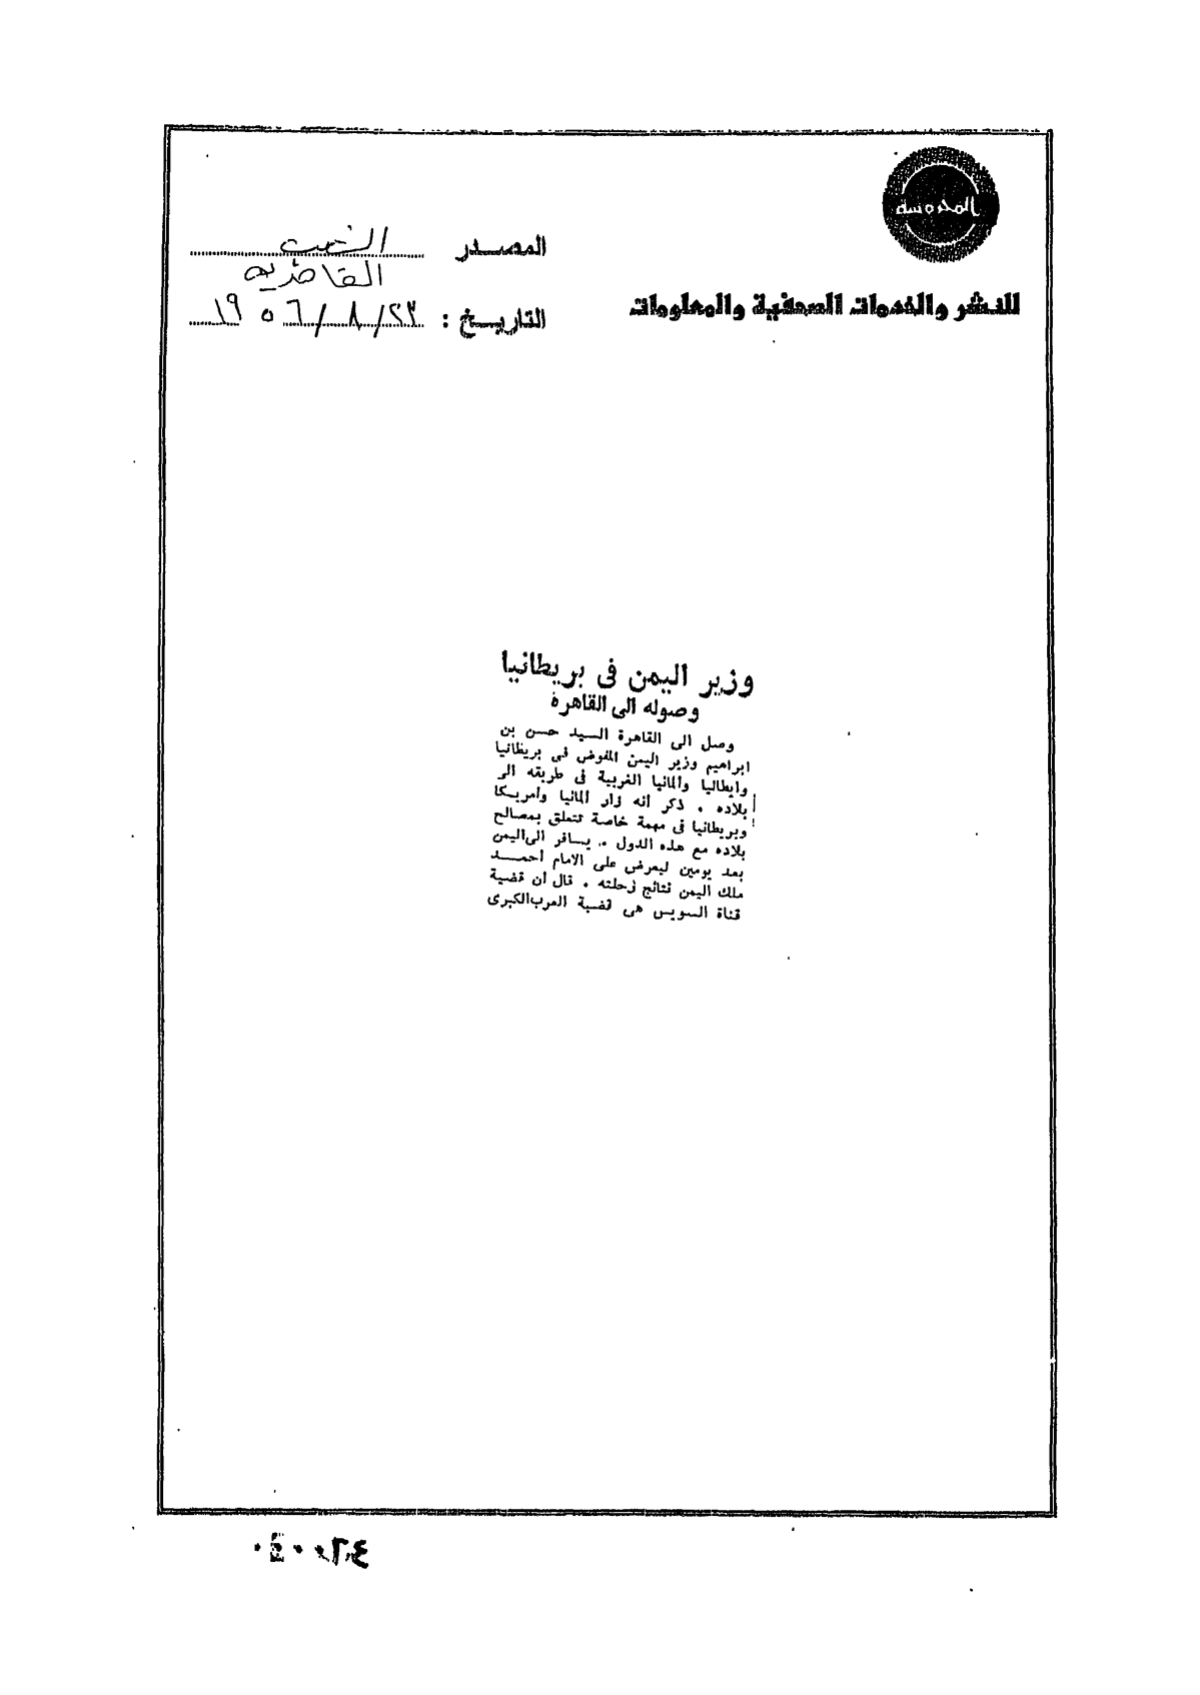 المحروسة
للنشر والخدمات الصحفية والمعلومات
المصدر الشعب
القاهرية
التاريخ : ٢٣/٨/١٩٥٦
وزير اليمن فى بريطانيا
وصوله الى القاهرة
وصل الى القاهرة السيد حسن بن
ابراهيم وزير اليمن المفوض فى بريطانيا
وايطاليا وألمانيا الغربية فى طريقه الى
بلاده . ذكر أنه زار المانيا وأمريكا
وبريطانيا فى مهمة خاصة تتعلق بمصالح
بلاده مع هذه الدول . يسافر الى اليمن
بعد يومين ليعرض على الامام أحمد
ملك اليمن نتائج رحلته . قال ان قضية
قناة السويس هى قضية العرب الكبرى